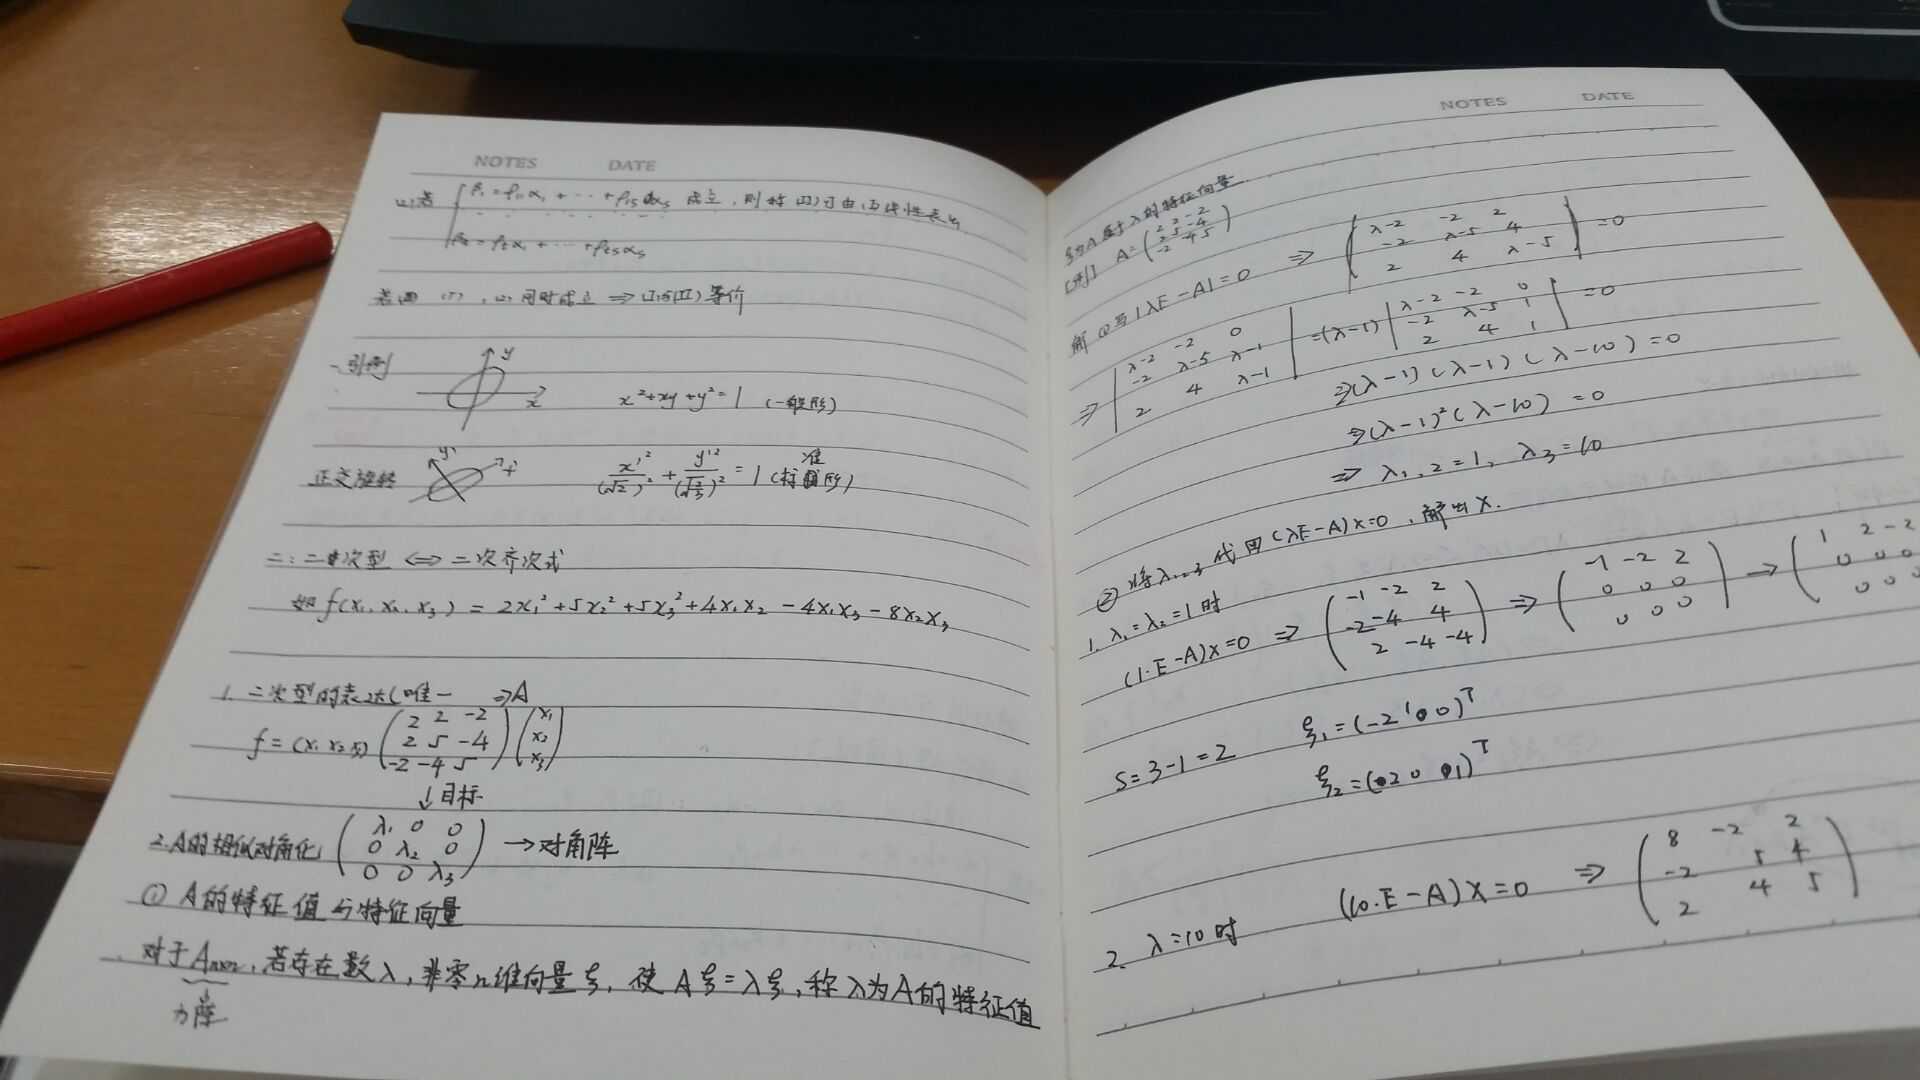 NOTES DATE
(2)若 { β₁ = ρ₁₁α₁ + ⋯ + ρ₁sαs 成立,则称(II)可由(I)线性表出
βt = ρt₁α₁ + ⋯ + ρtsαs
若 (1),(2)同时成立 ⇒ (I)与(II)等价
一引例 y x x²+xy+y²=1 (一般形)
正交旋转 y' x' x'²/(√2)² + y'²/(√(2/3))² = 1 (标准形)
二:二次型 ⇔ 二次齐次式
如 f(x₁, x₂, x₃) = 2x₁²+5x₂²+5x₃²+4x₁x₂-4x₁x₃-8x₂x₃
1. 二次型的表达(唯一 ⇒A
f = (x₁ x₂ x₃) (2 2 -2
2 5 -4
-2 -4 5) (x₁
x₂
x₃)
↓目标
2. A的相似对角化 (λ₁ 0 0
0 λ₂ 0
0 0 λ₃) → 对角阵
① A的特征值与特征向量
对于Aₙₓₙ,若存在数λ,非零n维向量ξ,使Aξ=λξ,称λ为A的特征值
方阵
NOTES DATE
ξ为A属于λ的特征向量.
[例] A = (2 2 -2
2 5 -4
-2 -4 5)
解 ①写 |λE-A|=0 ⇒ |λ-2 -2 2
-2 λ-5 4
2 4 λ-5| =0
⇒ |λ-2 -2 0
-2 λ-5 λ-1
2 4 λ-1| =(λ-1) |λ-2 -2 0
-2 λ-5 1
2 4 1| =0
⇒(λ-1)(λ-1)(λ-10)=0
⇒(λ-1)²(λ-10)=0
⇒ λ₁,₂=1, λ₃=10
② 将λ₁,₂,₃代回(λE-A)x=0,解出X.
1. λ₁=λ₂=1时
(1·E-A)x=0 ⇒ (-1 -2 2
-2 -4 4
2 -4 -4) ⇒ (-1 -2 2
0 0 0
0 0 0) → (1 2 -2
0 0 0
0 0 0
S=3-1=2 ξ₁=(-2 1 0)ᵀ
ξ₂=(2 0 1)ᵀ
2. λ=10时 (10·E-A)X=0 ⇒ (8 -2 2
-2 5 4
2 4 5)